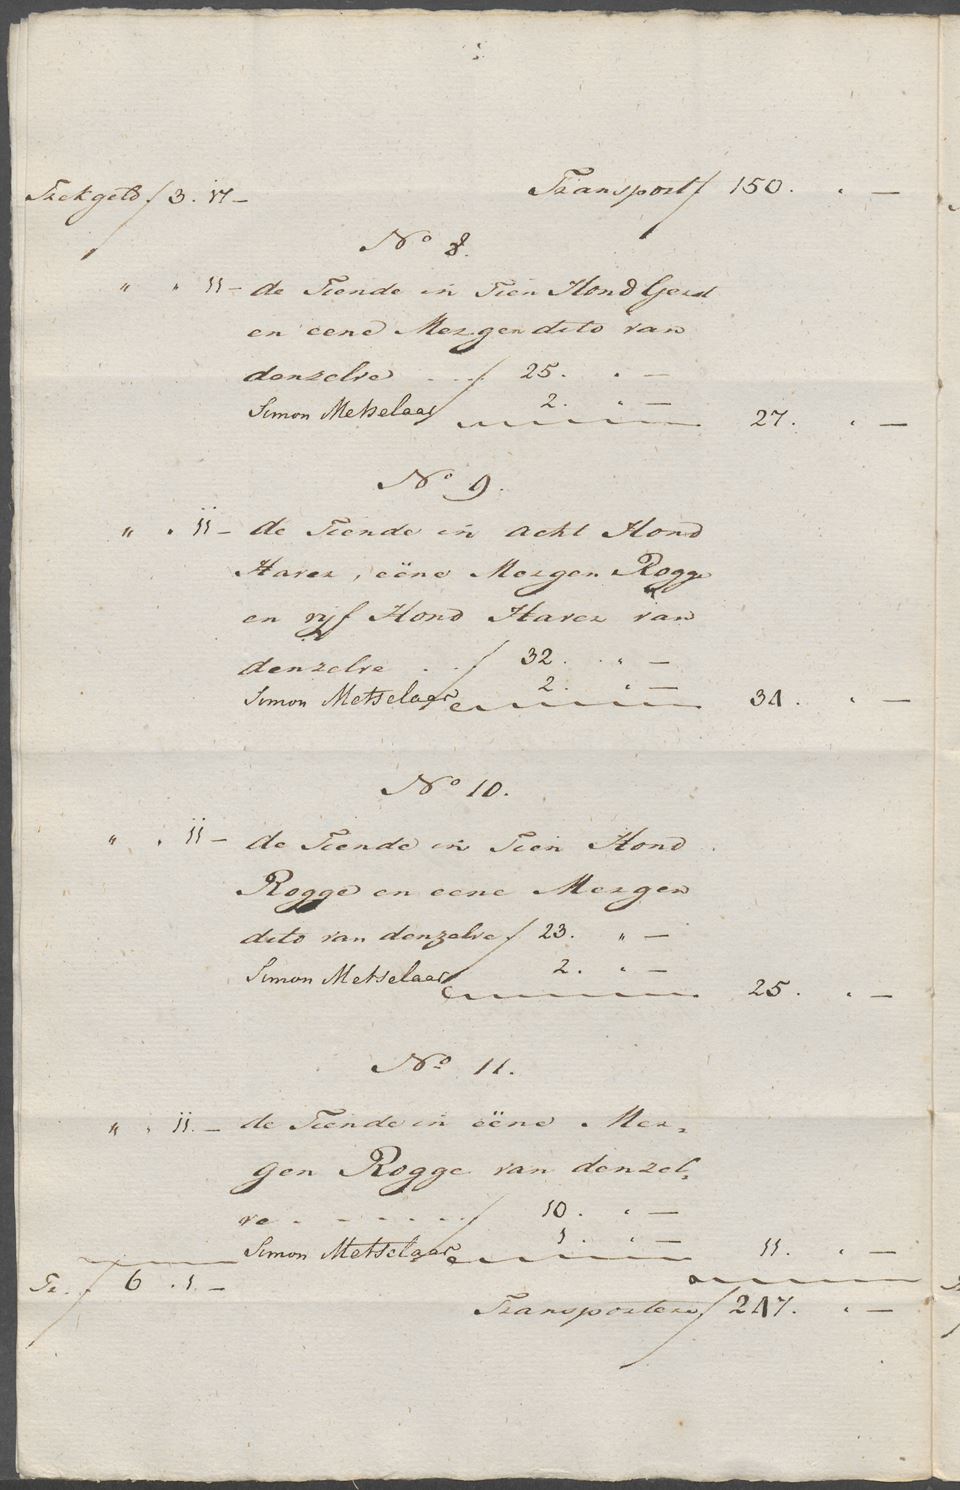 Trekgeld ƒ 3. 17 – Transport ƒ 150. " –
No 8.
" " 11 – de Tiende in Tien Hond Gerst
en eene Mergen dito van
denzelve . . . ƒ 25. " –
Simon Metselaar 2. " – 27. " –
No 9.
" " 11 – de Tiende in acht Hond
Haver, eene Mergen Rogge
en vijf Hond Haver van
denzelve . . ƒ 32. " –
Simon Metselaar 2. " – 34. " –
No 10.
" " 11 – de Tiende in Tien Hond
Rogge en eene Mergen
dito van denzelve ƒ 23. " –
Simon Metselaar 2. " – 25. " –
No 11.
" " 11. – de Tiende in eene Mer-
gen Rogge van denzel-
ve . . . . . . ƒ 10. " –
Simon Metselaar 1. " – 11. " –
Tr. ƒ 6. 1. –
Transportere ƒ 247. " –